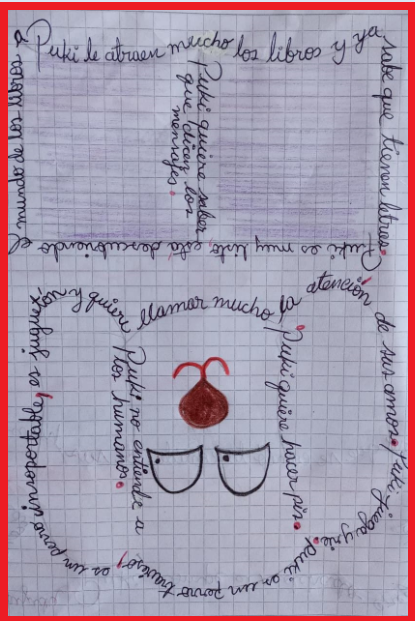 A Puki le atraen mucho los libros y ya sabe que tienen letras.
Puki es muy listo, está descubriendo el mundo de los libros
Puki quiere saber
que dicen los
mensajes.
Puki no entiende a
los humanos.
Puki quiere hacer pis.
Puki juega y ríe. Puki es un perro travieso, es un perro insoportable, es juguetón y quiere llamar mucho la atención de sus amos.